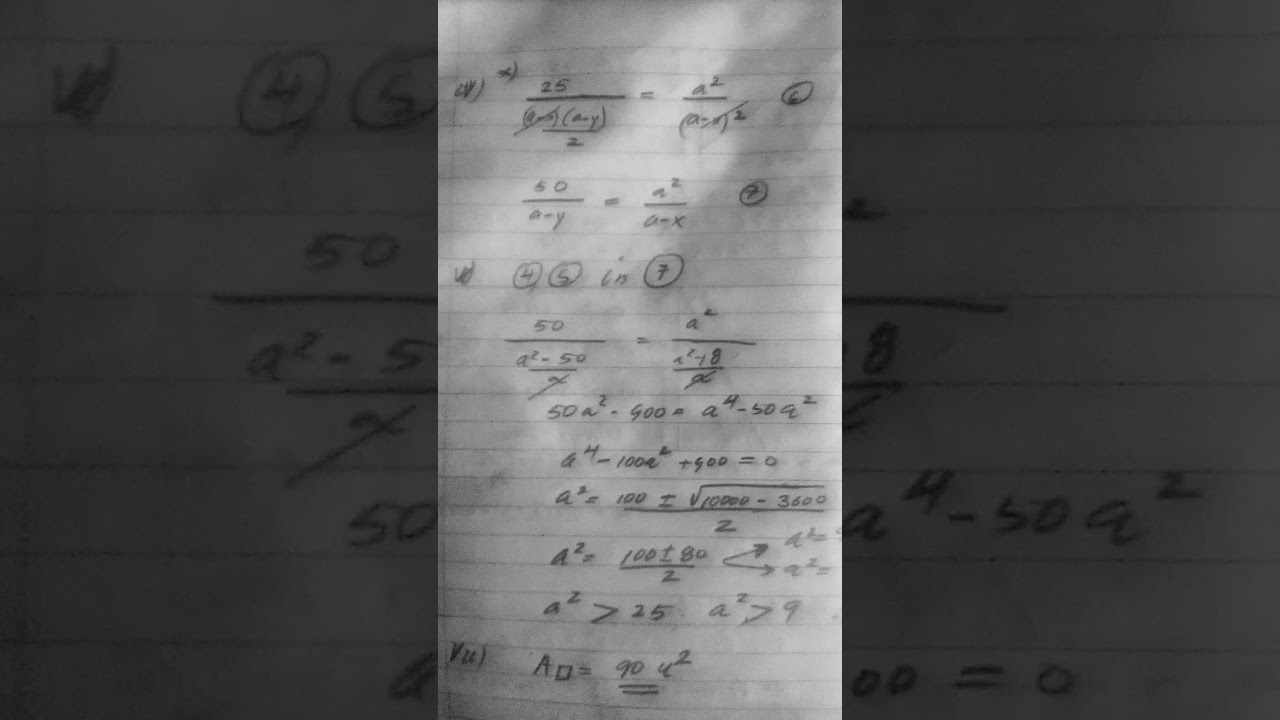 iv) *) 25 / ((a-x)(a-y)/2) = a² / (a-x)² ⑥
50 / (a-y) = a² / (a-x) ⑦
④,⑤ in ⑦
50 / ((a²-50)/x) = a² / ((a²-18)/x)
50a² - 900 = a⁴ - 50a²
a⁴ - 100a² + 900 = 0
a² = (100 ± √(10000 - 3600)) / 2
a² = (100 ± 80) / 2 a² =
a² =
a² > 25 a² > 9
Vii) A□ = 90 u²